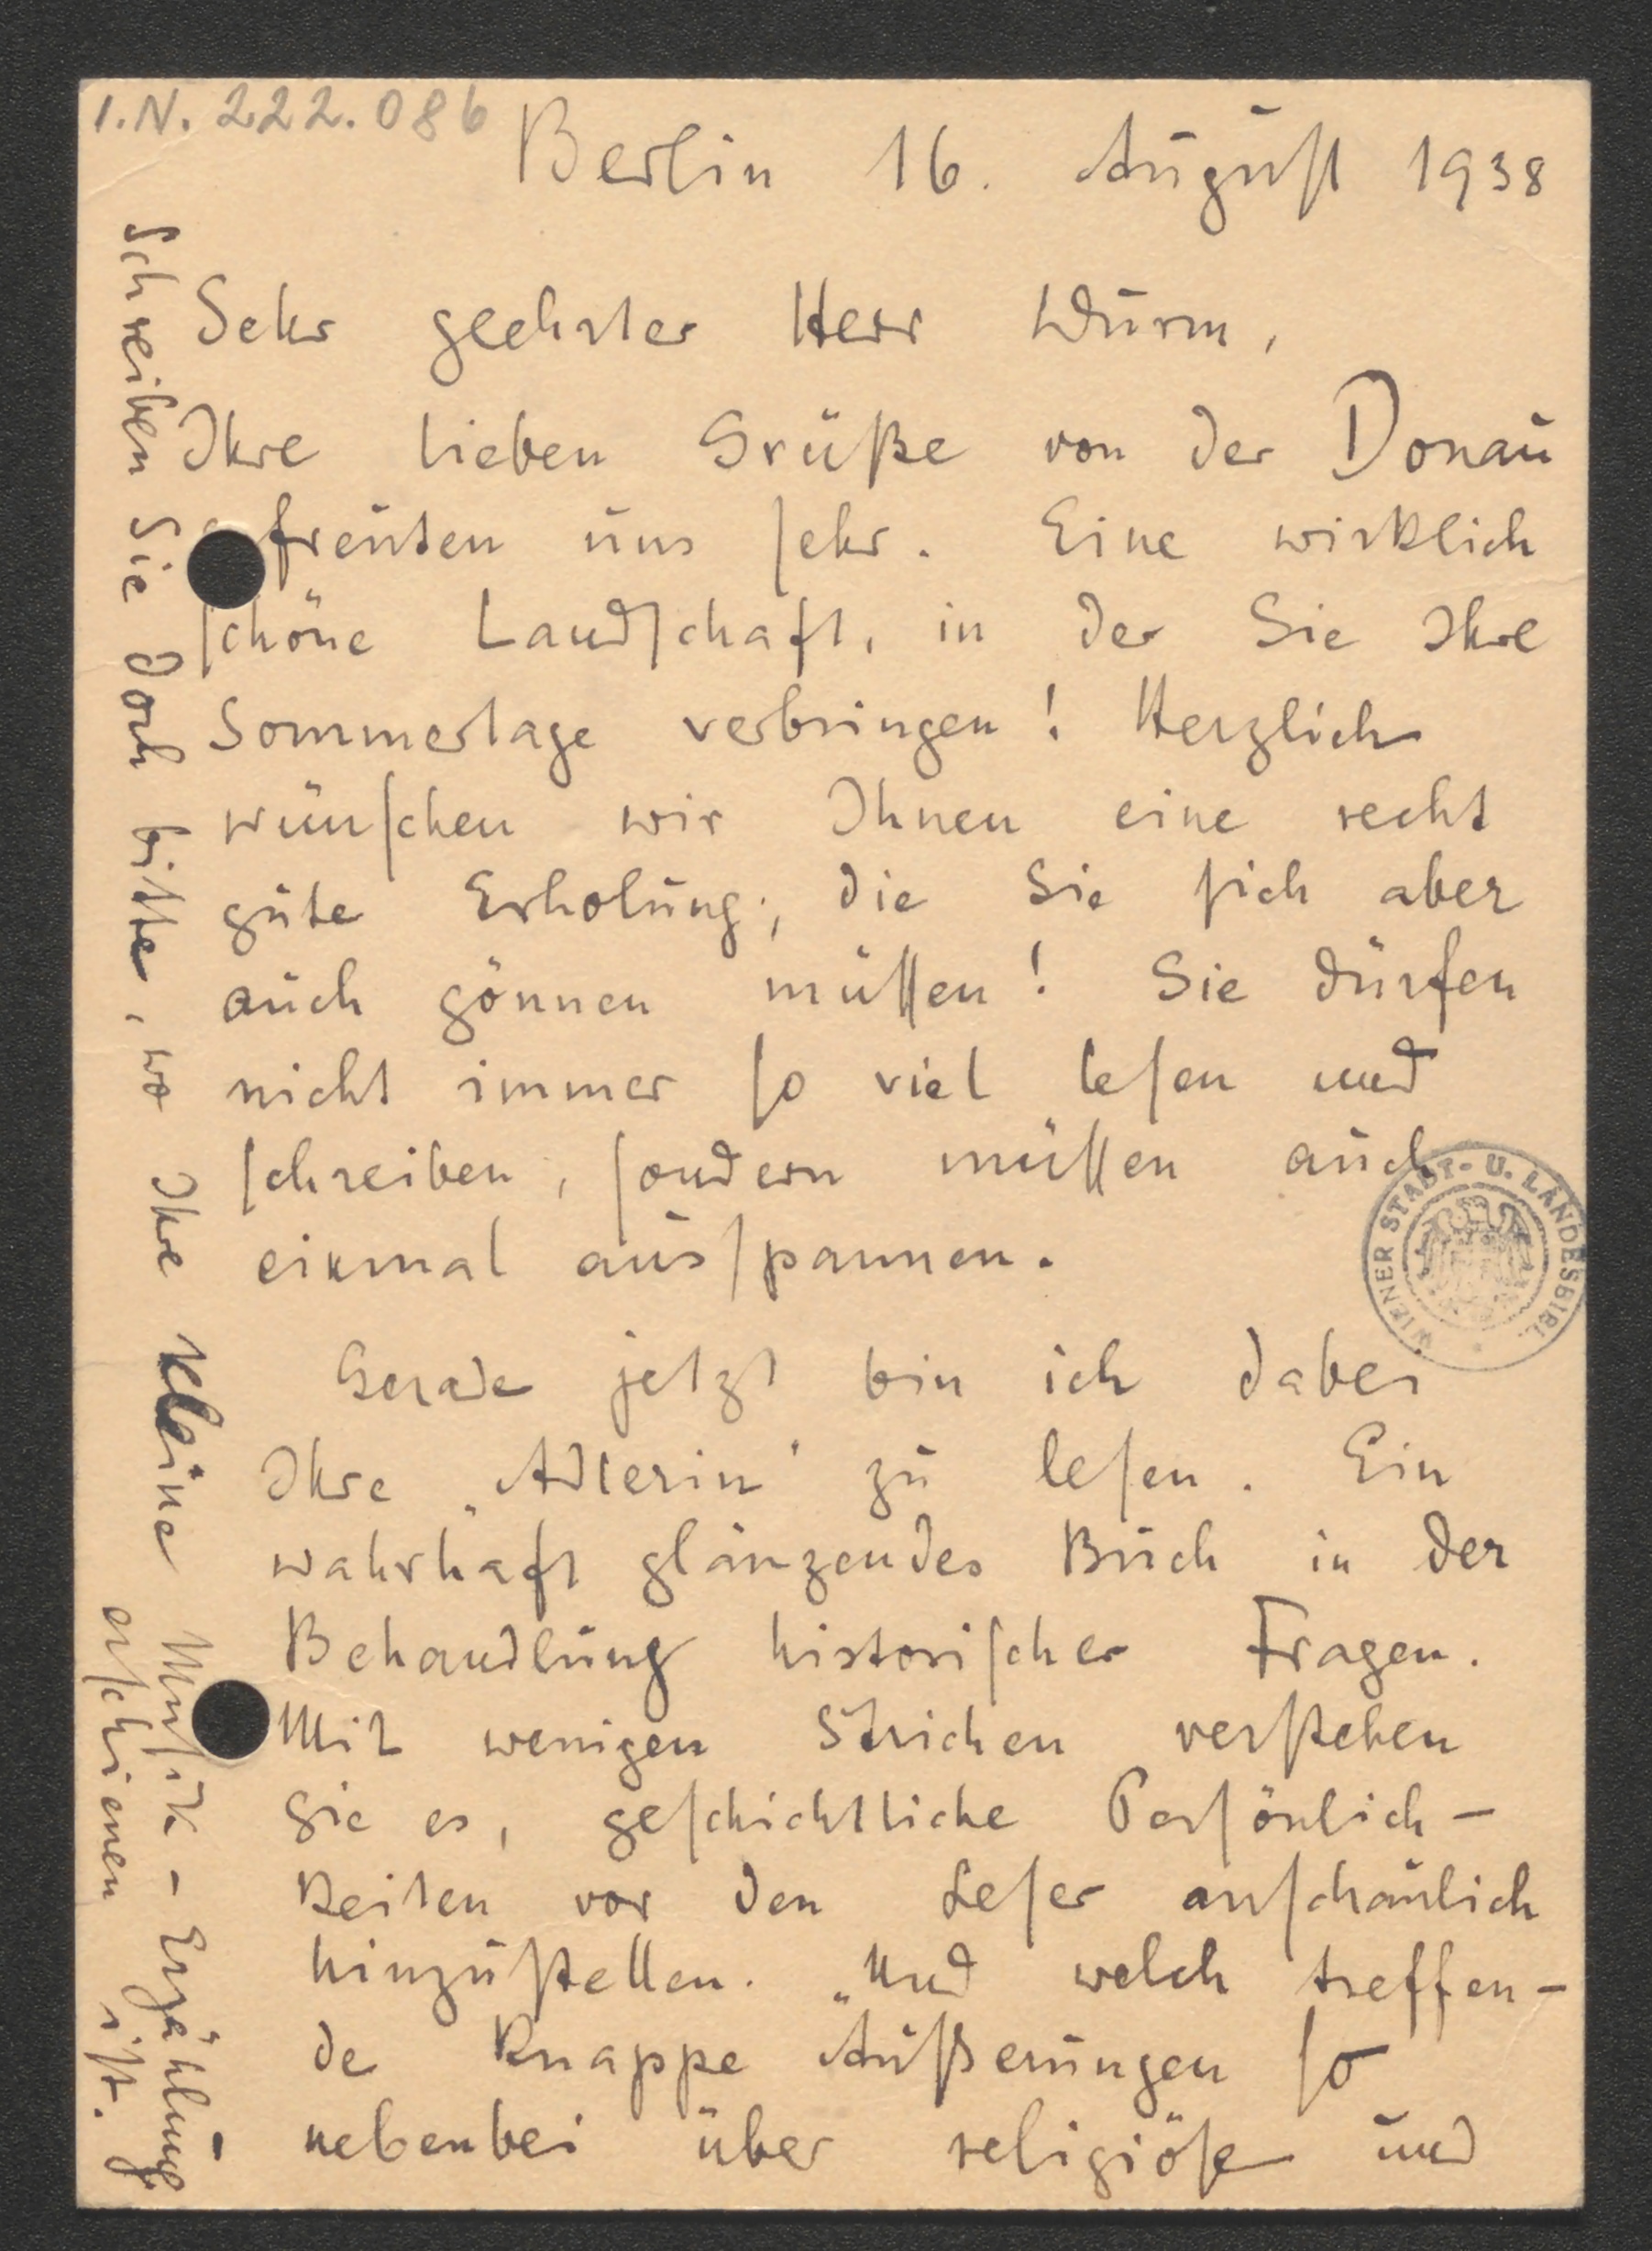 I.N. 222.086
Berlin 16. August 1938
Sehr geehrter Herr Wurm,
Ihre lieben Grüße von der Donau
erfreuten uns sehr. Eine wirklich
schöne Landschaft, in der Sie Ihre
Sommertage verbringen! Herzlich
wünschen wir Ihnen eine recht
gute Erholung, die Sie sich aber
auch gönnen müssen! Sie dürfen
nicht immer so viel lesen und
schreiben, sondern müssen auch
einmal ausspannen.
Gerade jetzt bin ich dabei
Ihre „Adlerin" zu lesen. Ein
wahrhaft glänzendes Buch in der
Behandlung historischer Fragen.
Mit wenigen Strichen verstehen
Sie es, geschichtliche Persönlich-
keiten vor den Leser anschaulich
hinzustellen. Und welch treffen-
de knappe Äußerungen so
nebenbei über religiöse und
Schreiben Sie doch bitte, wo Ihre kleine Musik-Erzählung
erschienen ist.
WIENER STADT- U. LANDESBIBL.